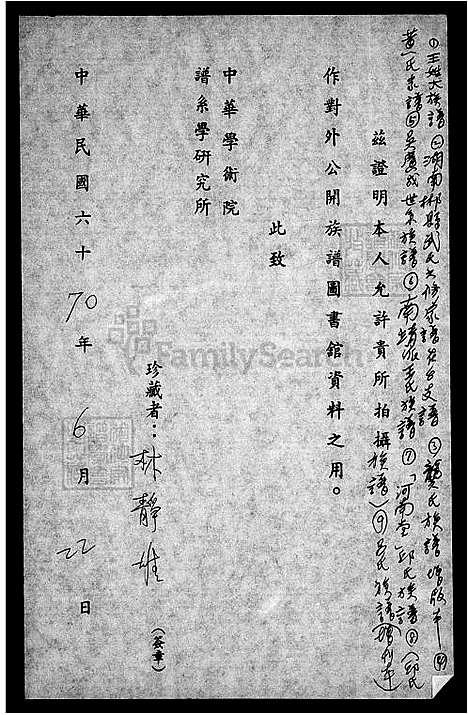 ①王姓大族譜②湖南郴縣武氏六修家譜 支譜③龔氏族譜增版本④
黃氏家譜⑤吳廣成世系族譜⑥南靖派王氏族譜⑦「河南堂」邱氏族譜⑧(邱氏
族譜)⑨呂氏族譜(增刊本)
茲證明本人允許貴所拍攝
作對外公開族譜圖書館資料之用。
此致
中華學術院
譜系學研究所
珍藏者：林靜雄
(簽章)
中華民國六十70年6月22日
FamilySearch